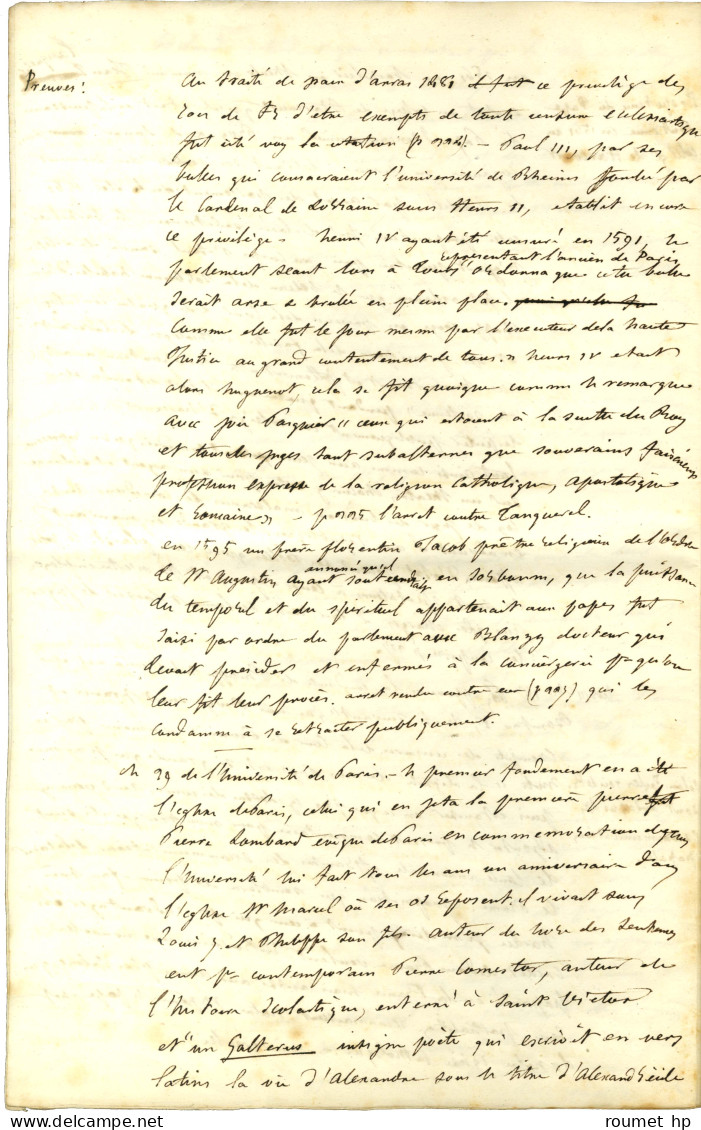 Preuves: Au traité de paix d'arras 1481 il fut ce privilège des
rois de Fr d'etre exempts de toute censure ecclesiastique
fut cité voy la citation (p 994). - Paul III, par ses
bulles qui consacraient l'université de Rheims fondé par
le Cardinal de Lorraine sous Henri II, etablit encore
ce privilège. henri IV ayant été censuré en 1591, le
parlement séant lors à Tours representant l'ancien de Paris ordonna que cette bulle
serait arse et brulée en plein place.
comme elle fut le jour mesme par l'executeur de la haute
Justice au grand contentement de tous. » henri IV etait
alors huguenot, cela se fit quoique comme le remarque
avec joie Pasquier " ceux qui estoient à la suitte du Roy
et tous les juges tant subalternes que souverains faisoient
profession expresse de la religion catholique, apostolique
et romaine » - p 995 l'arret contre Tanquerel.
en 1595 un frère florentin Jacob prêtre religieux de l'ordre
de St Augustin ayant annoncé qu'il soutiendrait en Sorbonne, que la puissance
du temporel et du spirituel appartenait aux papes fut
saisi par ordre du parlement avec Blanzy docteur qui
devait presider et enfermés à la conciergerie pr qu'on
leur fit leur procès. arret rendu contre eux (p 995) qui les
condamne à se retracter publiquement.
ch 29 de l'Université de Paris. le premier fondement en a été
l'eglise de Paris, celui qui en jeta la premiere pierre fut
Pierre Lombard evêque de Paris en commemoration de quoy
l'Université lui fait tous les ans un anniversaire dans
l'eglise St Marcel où ses os reposent. il vivait sous
Louis 7 et Philippe son fils. auteur du livre des Sentences
eut pr contemporain Pierre Comestor, auteur de
l'histoire scolastique, enterré à Saint Victor
et "un Galterus insigne poëte qui escrivit en vers
latins la vie d'Alexandre sous le titre d'Alexandréide
roumet hp